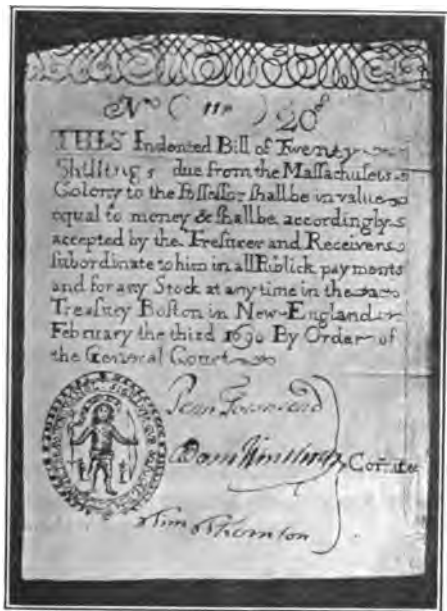 No ( 11 ) 20s
THIS Indented Bill of Twenty
Shillings due from the Massachusets
Colony to the Possessor shall be in value
equal to money & shall be accordingly
accepted by the Tresurer and Receivers
subordinate to him in all Publick payments
and for any Stock at any time in the
Treasury Boston in New-England
February the third 1690 By Order of
the General Court
Penn Townsend
Adam Winthrop Comitee
Tim Thornton